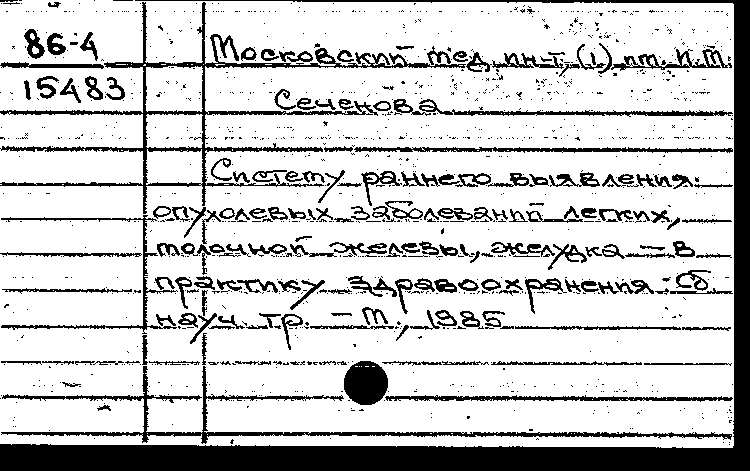 86-4 Московский мед. ин-т (1) им. И.М.
15483 Сеченова
Систему раннего выявления
опухолевых заболеваний легких,
молочной железы, желудка — в
практику здравоохранения: Сб.
науч. тр. — М., 1985